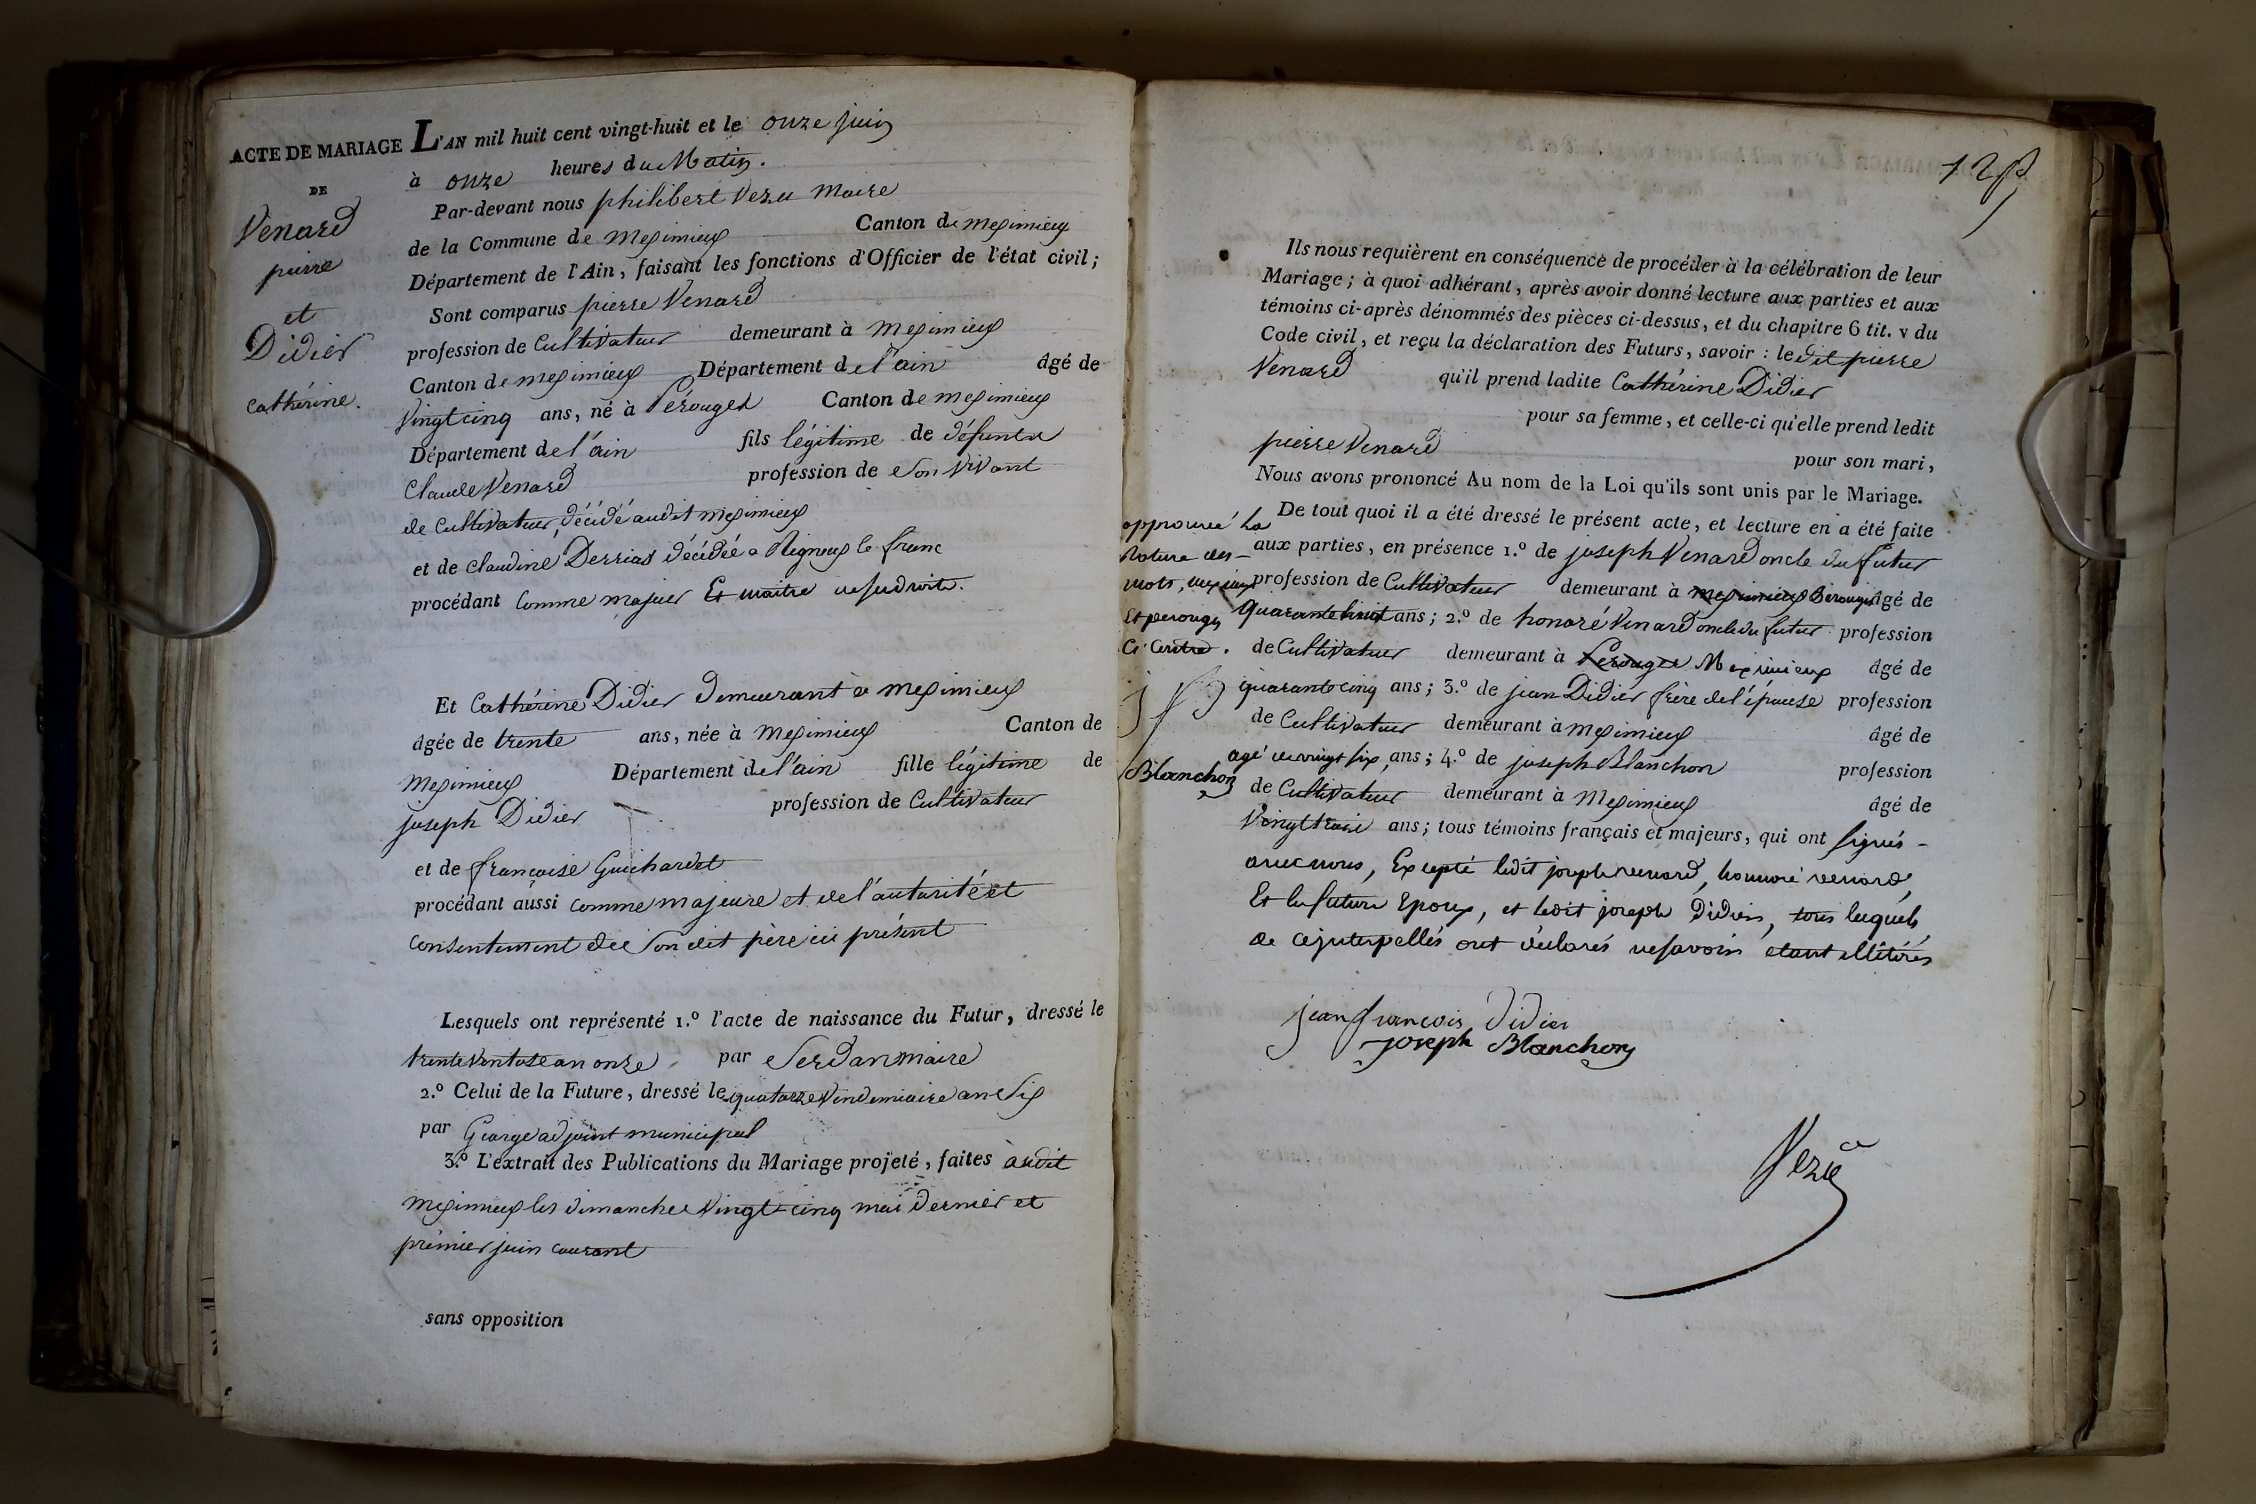 ACTE DE MARIAGE
DE
Venard
pierre
et
Didier
cathérine.
L'AN mil huit cent vingt-huit et le onze juin
à onze heures du Matin.
Par-devant nous philibert Vezu Maire
de la Commune de meximieux Canton de meximieux
Département de l'Ain, faisant les fonctions d'Officier de l'état civil;
Sont comparus pierre Venard
profession de Cultivateur demeurant à meximieux
Canton de meximieux Département de l'ain âgé de
Vingt cinq ans, né à Pérouges Canton de meximieux
Département de l'ain fils légitime de défunts
Claude Venard profession de Son Vivant
de Cultivateur, décédé audit meximieux
et de claudine Derrias décédée a Rigneux le franc
procédant comme majeur Et maitre de ses droits.
Et Cathérine Didier demeurant a meximieux
âgée de trente ans, née à meximieux Canton de
meximieux Département de l'ain fille légitime de
joseph Didier profession de Cultivateur
et de françoise Guichardet
procédant aussi comme majeure et de l'autorité et
consentement de Son dit père ici présent
Lesquels ont représenté 1.º l'acte de naissance du Futur, dressé le
trente Ventose an onze par Serdan maire
2.º Celui de la Future, dressé le quatorze Vendemiaire an Six
par George adjoint municipal
3.º L'extrait des Publications du Mariage projeté, faites audit
meximieux les dimanches Vingt-cinq mai dernier et
prémier juin courant
sans opposition
Ils nous requièrent en conséquence de procéder à la célébration de leur
Mariage; à quoi adhérant, après avoir donné lecture aux parties et aux
témoins ci-après dénommés des pièces ci-dessus, et du chapitre 6 tit. v du
Code civil, et reçu la déclaration des Futurs, savoir : ledit pierre
Venard qu'il prend ladite Cathérine Didier
pour sa femme, et celle-ci qu'elle prend ledit
pierre Venard pour son mari,
Nous avons prononcé Au nom de la Loi qu'ils sont unis par le Mariage.
De tout quoi il a été dressé le présent acte, et lecture en a été faite
aux parties, en présence 1.º de joseph Venard oncle du futur
profession de Cultivateur demeurant à meximieux Perouges âgé de
quarante huit ans; 2.º de honoré Venard oncle du futur profession
de Cultivateur demeurant à Perouges Meximieux âgé de
quarante cinq ans; 3.º de jean Didier frère de l'épouse profession
de Cultivateur demeurant à meximieux âgé de
agé de vingt six ans; 4.º de joseph Blanchon profession
de Cultivateur demeurant à Meximieux âgé de
Vingt trois ans; tous témoins français et majeurs, qui ont signés
avec nous, Excepté ledit joseph venard, honnoré venard,
Et les futurs Epoux, et ledit joseph Didier, tous lesquels
de ce interpellés ont déclarés ne savoir etant illitérés
approuvé la
rature des
mots, meximieux
Et perouges
Ci Contre.
Blanchon
jean françois didier
joseph Blanchon
Vezu